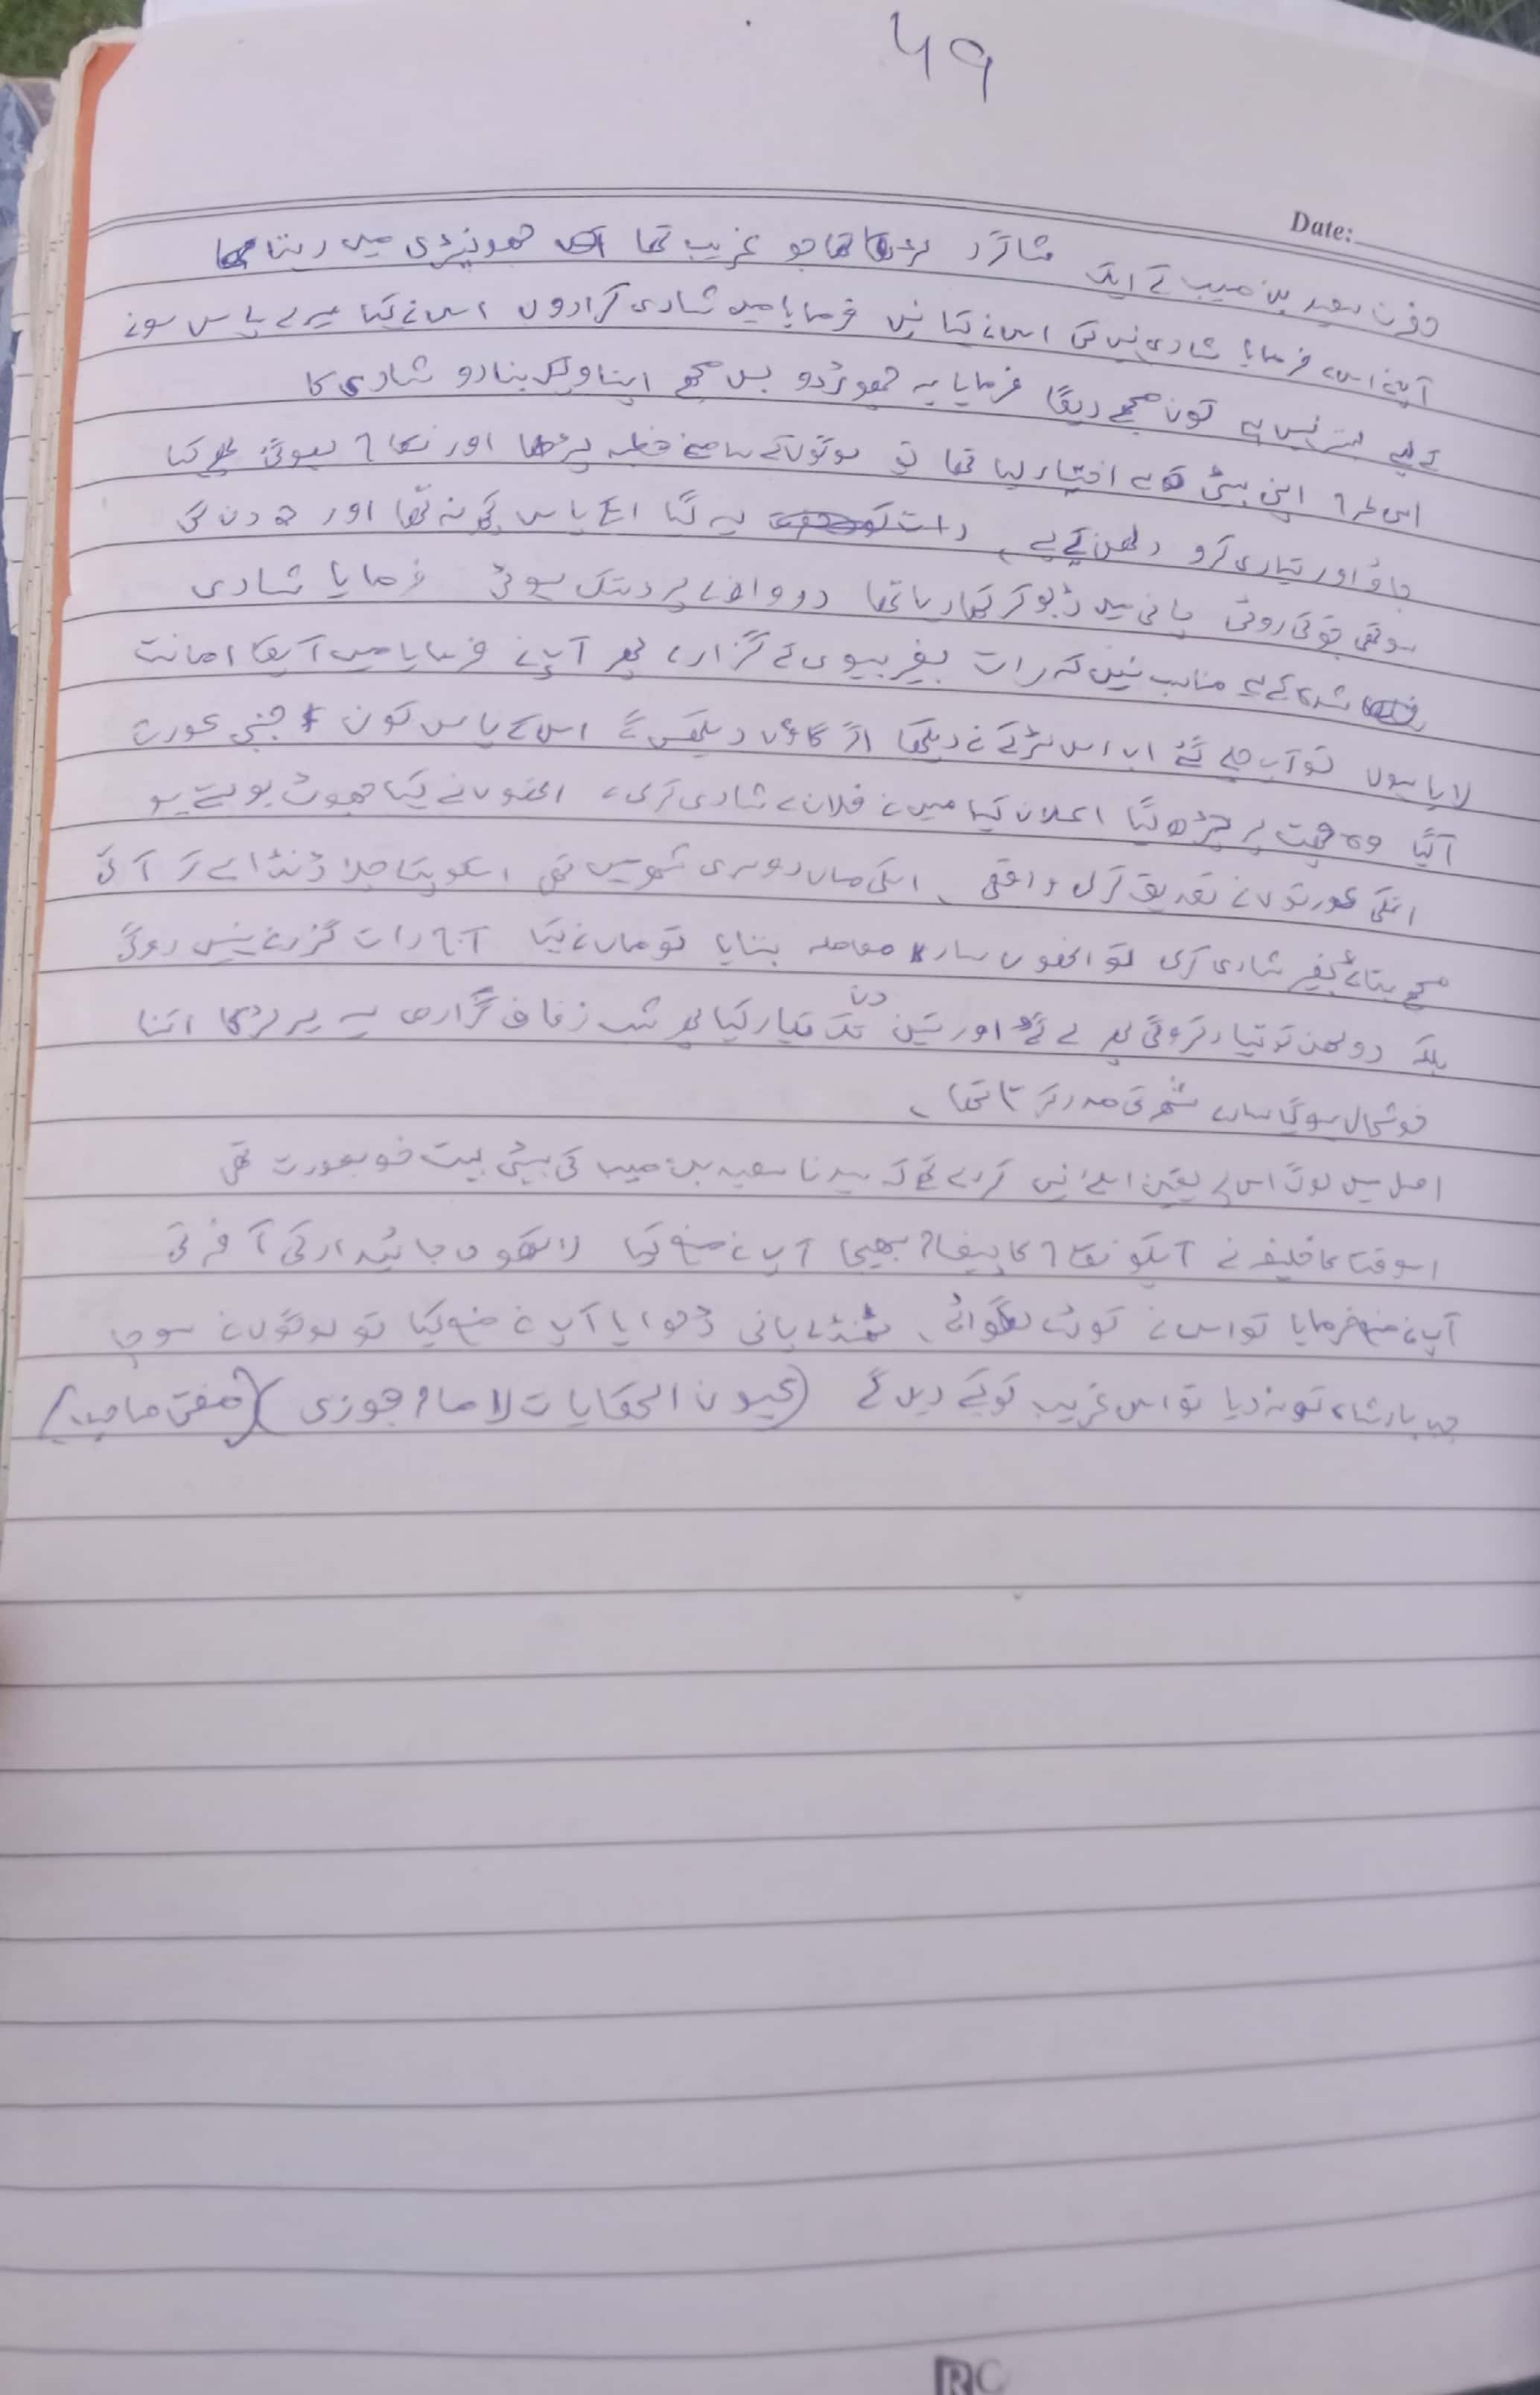 ۵۹
Date:
حضرت سعید بن مسیب کے ایک شاگرد لڑکا تھا جو غریب تھا جھونپڑی میں رہتا تھا
آپنے اسے فرمایا شادی نہیں کی اس نے کہا نہیں فرمایا میں شادی کرادوں اس نے کہا میرے پاس سونے
کے لیے بستر نہیں ہے کون مجھے دیگا فرمایا یہ چھوڑدو بس مجھے اپنا وکیل بنا دو شادی کا
اس طرح اپنی بیٹی سے اختیار لیا تھا تو لوگوں کے سامنے خطبہ پڑھا اور نکاح ہوگئ پھر کہا
جاؤ اور تیاری کرو دلھن کے لیے، رات کو یہ گیا اسکے پاس کچھ نہ تھا اور ۵ دن کی
سوکھی جو کی روٹی پانی میں ڈبو کر کھا رہا تھا دروازے پر دستک ہوئی فرمایا شادی
شدہ کے لیے مناسب نہیں کہ رات بغیر بیوی کے گزارے پھر آپنے فرمایا میں آپکا امانت
لایا ہوں تو آپ چلے گئے اب اس لڑکے نے دیکھا اگر گاؤں دیکھیں گے اس کے پاس کون اجنبی عورت
آگیا وہ چھت پر چڑھ گیا اعلان کیا میں نے فلاں سے شادی کرلی، انھوں نے کہا جھوٹ بولتے ہو
انکی عورتوں نے تصدیق کرلی واقعی، اسکی ماں دوسری شہر میں تھی اسکو پتا چلا ڈنڈا لے کر آ گئی
مجھے بتائے بغیر شادی کرلی تو انھوں سارا معاملہ بتایا تو ماں نے کہا آج رات گزرنے نہیں دوں گی
بلکہ دولھن کو تیار کروں گی پھر لے گئے اور تین دن تک تیار کیا پھر شب زفاف گزاری یہ لڑکا اتنا
خوشحال ہو گیا سارے شہر کی مدد کرتا تھا،
اصل میں لوگ اس پر یقین اسلئے نہیں کررہے تھے کہ سیدنا سعید بن مسیب کی بیٹی بہت خوبصورت تھی
اسوقت کا خلیفہ نے آپکو نکاح کا پیغام بھیجا آپ نے منع کیا لاکھوں جائیداد کی آفر کی
آپ نے منع فرمایا تو اس نے کوڑے لگوائے، ٹھنڈے پانی ڈلوایا آپ نے منع کیا تو لوگوں نے سوچا
جب بادشاہ کو نہ دیا تو اس غریب کو کیسے دیں گے (عیون الحکایات لامام جوزی) (مفتی صاحب)
RC